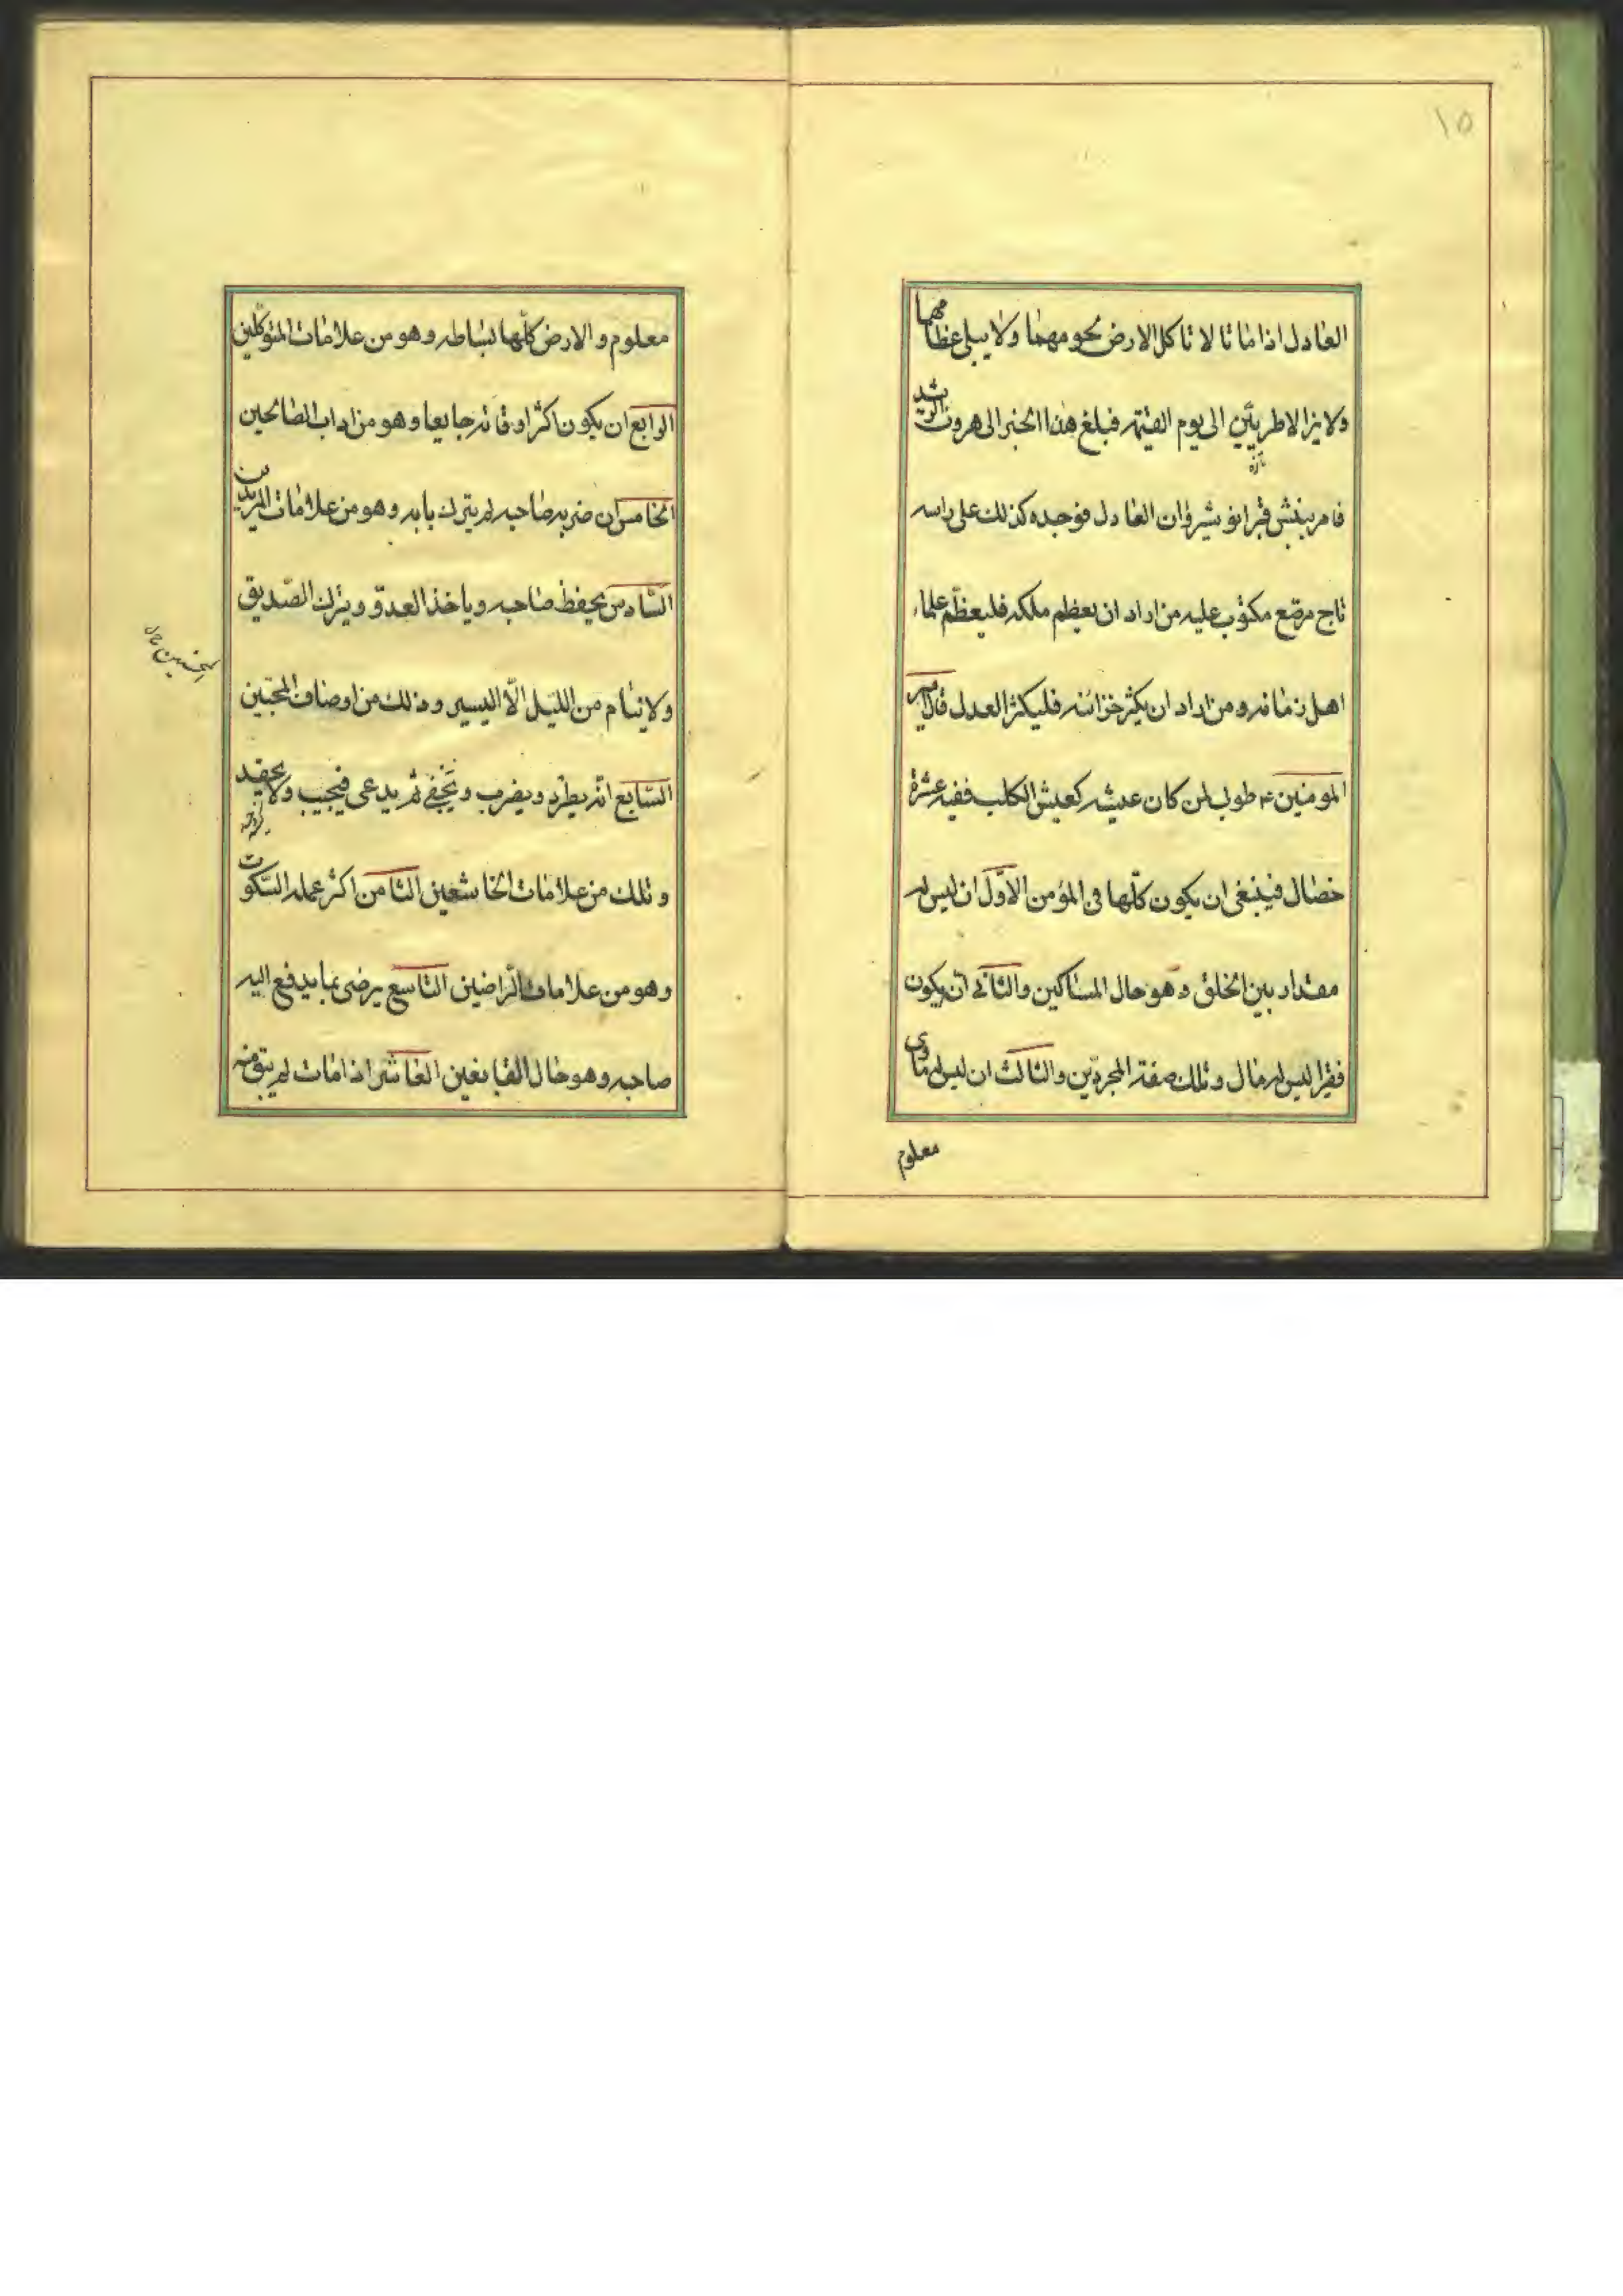 ١٥
العادل اذا ماتا لا تاكل الارض لحومهما ولا يبلى عظامهما
ولا يزالا طريّين الى يوم القيٰمة فبلغ هذا الخبر الى هرون الرشيد
تازه
فامر بنبش قبر انوشيروان العادل فوجده كذلك على راسه
تاج مرصّع مكتوب عليه من اراد ان يعظم ملكه فليعظّم علماء
اهل زمانه ومن اراد ان يكثر خزائنه فليكثر العدل قال امير
المومنين ع طوبى لمن كان عيشه كعيش الكلب ففيه عشرة
خصال فينبغى ان يكون كلّها فى المؤمن الاوّل ان ليس له
مقدار بين الخلق وهو حال المساكين والثانى ان يكون
فقيرا ليس له مال وتلك صفة المجردين والثالث ان ليس له ماوى
معلوم
معلوم والارض كلّها بساطه وهو من علامات المتوكّلين
الرابع ان يكون اكثر اوقاته جايعا وهو من اداب الصالحين
الخامس ان ضربه صاحبه لم يترك بابه وهو من علامات المريدين
السّادس يحفظ صاحبه وياخذ العدوّ ويترك الصّديق
ولا ينام من اللّيل الّا اليسير وذلك من اوصاف المحبّين
السّابع انه يطرد ويضرب ويجفى ثم يدعى فيجيب ولا يحقد
وتلك من علامات الخاشعين الثامن اكثر عمله السّكوت
وهو من علامات الرّاضين التاسع يرضى بما يدفع اليه
صاحبه وهو حال القانعين العاشر اذا مات لم يبق منه